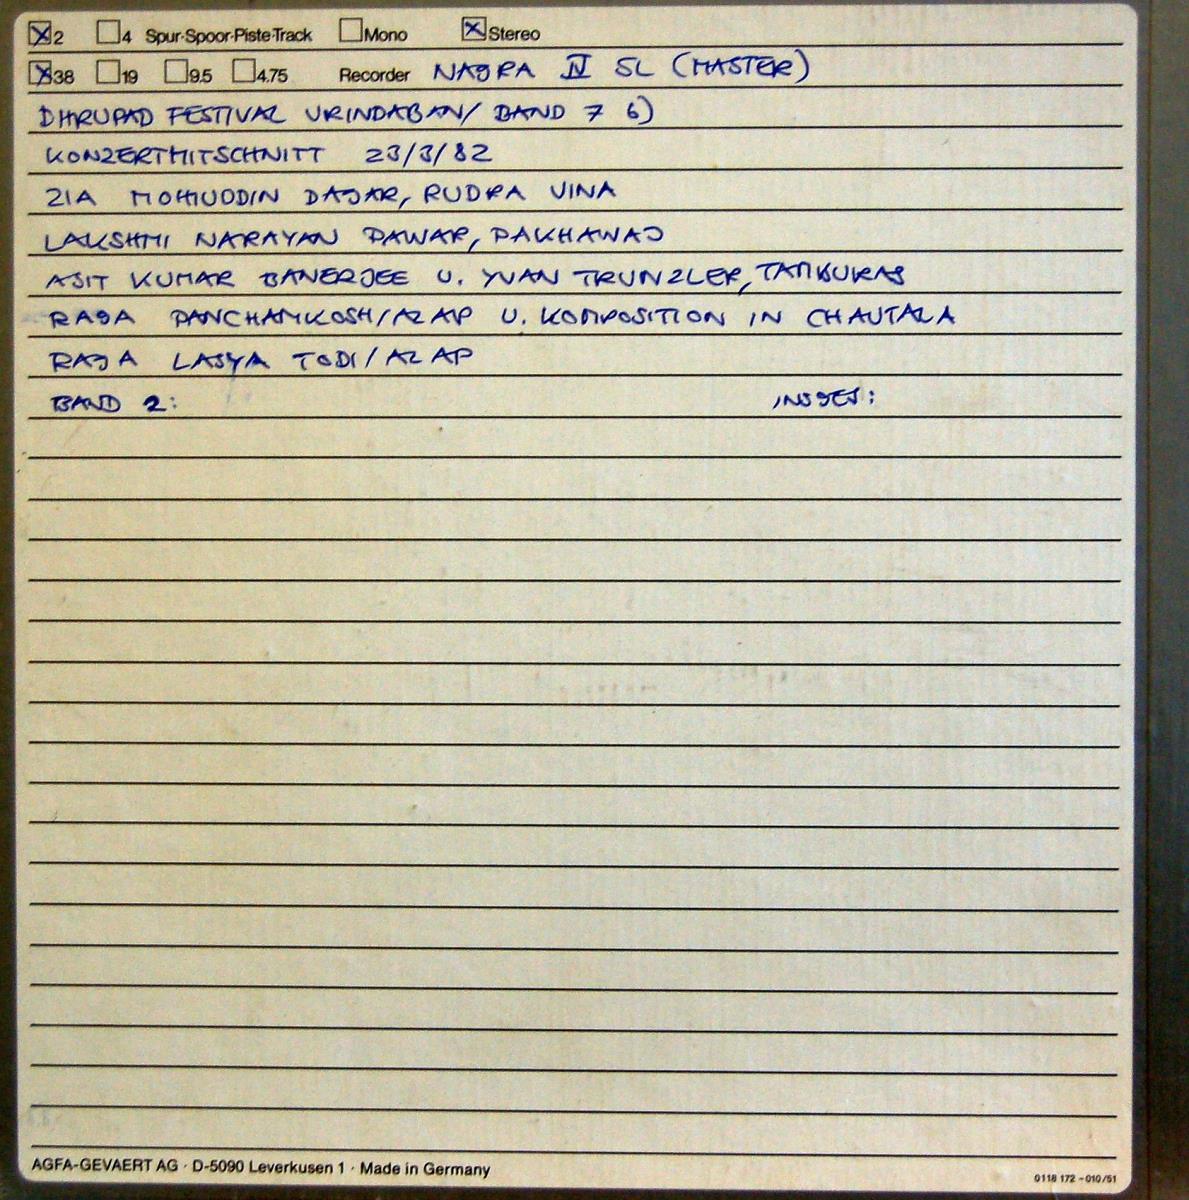 ☒2 ☐4 Spur-Spoor-Piste-Track ☐Mono ☒Stereo
☒38 ☐19 ☐9.5 ☐4.75 Recorder NAGRA IV SL (MASTER)
DHRUPAD FESTIVAL VRINDABAN/ BAND 7 6)
KONZERTMITSCHNITT 23/3/82
ZIA MOHIUDDIN DAGAR, RUDRA VINA
LAKSHMI NARAYAN PAWAR, PAKHAWAJ
ASIT KUMAR BANERJEE U. YVAN TRUNZLER, TAMBURAS
RAGA PANCHAMKOSH/ALAP U. KOMPOSITION IN CHAUTALA
RAGA LASYA TODI/ALAP
BAND 2: INSGES:
AGFA-GEVAERT AG · D-5090 Leverkusen 1 · Made in Germany
0118 172 - 010/51